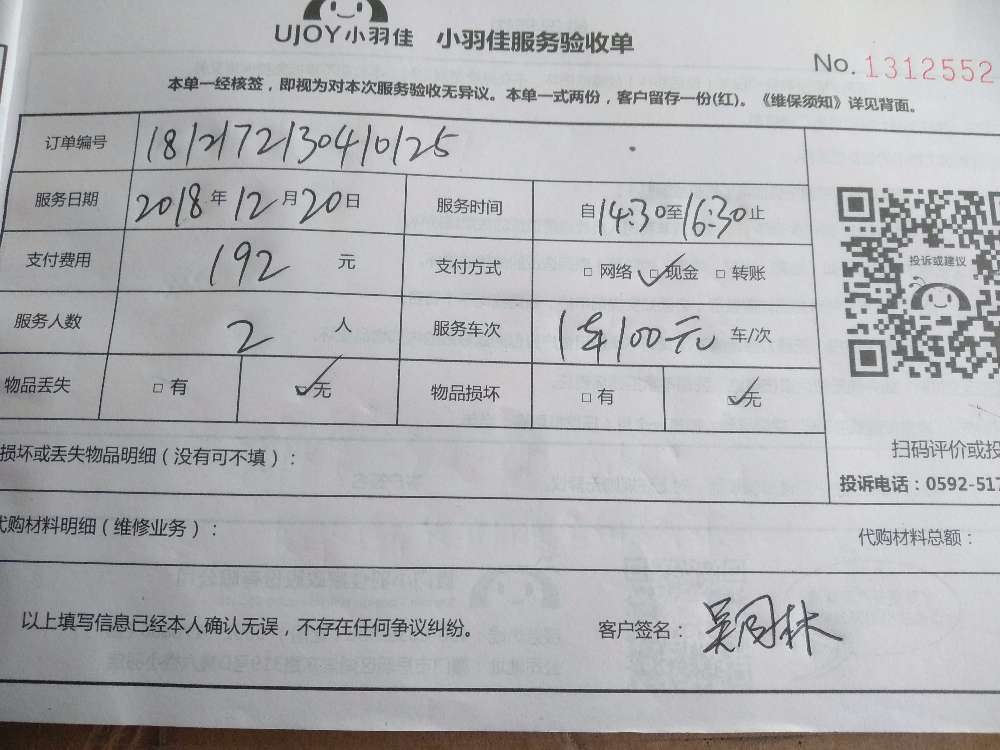 UJOY小羽佳 小羽佳服务验收单
No. 1312552
本单一经核签，即视为对本次服务验收无异议。本单一式两份，客户留存一份(红)。《维保须知》详见背面。
订单编号 1812172130410125
服务日期 2018年12月20日 服务时间 自14:30至16:30止
支付费用 192 元 支付方式 □ 网络 □ 现金 □ 转账
投诉或建议
服务人数 2 人 服务车次 1车100元 车/次
物品丢失 □ 有 □ 无 物品损坏 □ 有 □ 无
损坏或丢失物品明细（没有可不填）：
扫码评价或投
投诉电话：0592-517
代购材料明细（维修业务）：
代购材料总额：
以上填写信息已经本人确认无误，不存在任何争议纠纷。 客户签名：